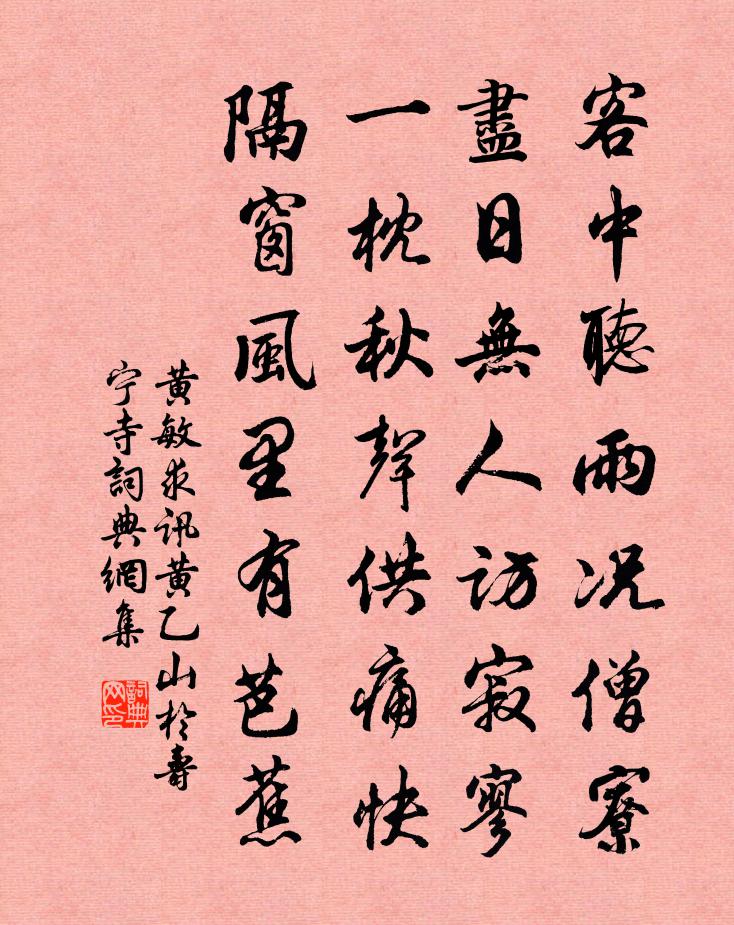 客中聽雨况僧寮
盡日無人訪寂寥
一枕秋聲供痛快
隔窗風里有芭蕉
黄敏求訊黄乙山於壽
宁寺詞典網集
詞典網印